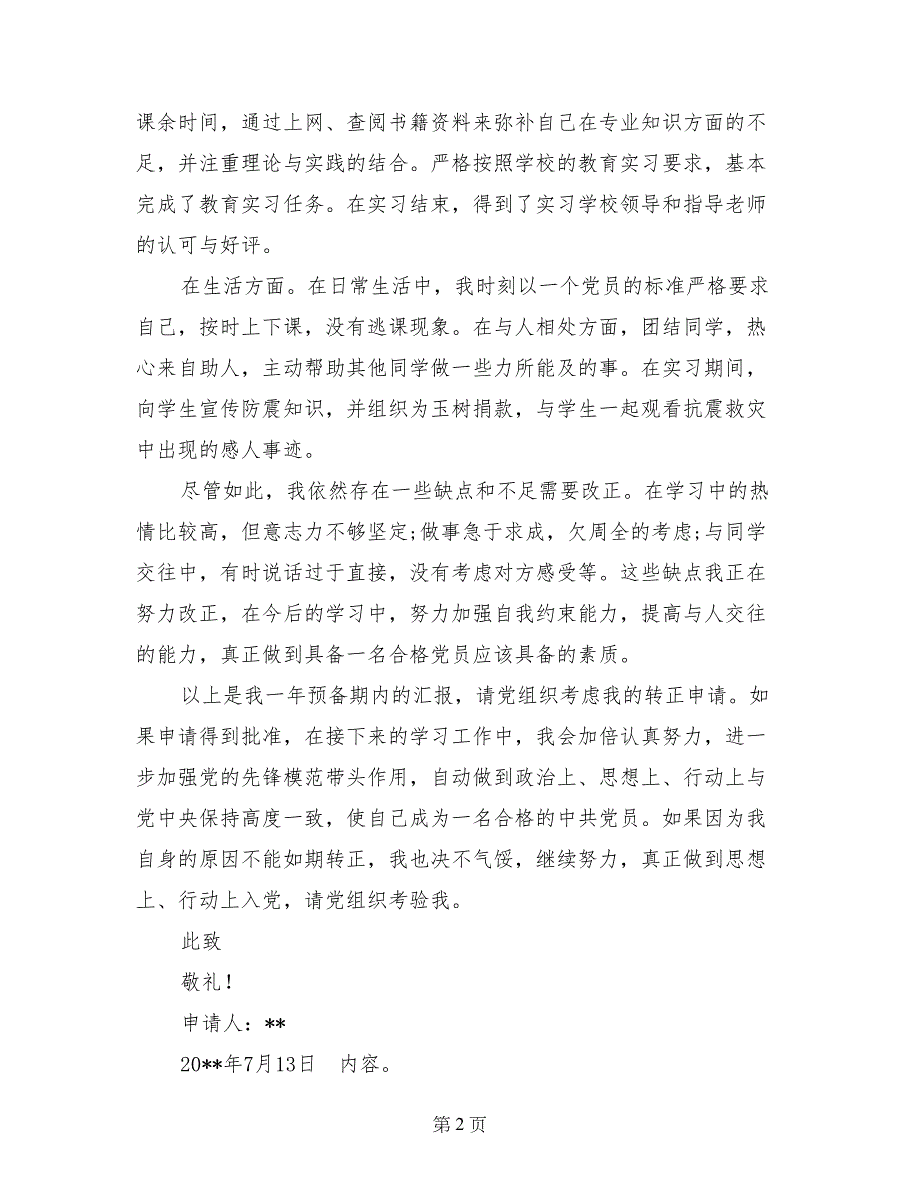 课余时间，通过上网、查阅书籍资料来弥补自己在专业知识方面的不
足，并注重理论与实践的结合。严格按照学校的教育实习要求，基本
完成了教育实习任务。在实习结束，得到了实习学校领导和指导老师
的认可与好评。
在生活方面。在日常生活中，我时刻以一个党员的标准严格要求
自己，按时上下课，没有逃课现象。在与人相处方面，团结同学，热
心来自助人，主动帮助其他同学做一些力所能及的事。在实习期间，
向学生宣传防震知识，并组织为玉树捐款，与学生一起观看抗震救灾
中出现的感人事迹。
尽管如此，我依然存在一些缺点和不足需要改正。在学习中的热
情比较高，但意志力不够坚定;做事急于求成，欠周全的考虑;与同学
交往中，有时说话过于直接，没有考虑对方感受等。这些缺点我正在
努力改正，在今后的学习中，努力加强自我约束能力，提高与人交往
的能力，真正做到具备一名合格党员应该具备的素质。
以上是我一年预备期内的汇报，请党组织考虑我的转正申请。如
果申请得到批准，在接下来的学习工作中，我会加倍认真努力，进一
步加强党的先锋模范带头作用，自动做到政治上、思想上、行动上与
党中央保持高度一致，使自己成为一名合格的中共党员。如果因为我
自身的原因不能如期转正，我也决不气馁，继续努力，真正做到思想
上、行动上入党，请党组织考验我。
此致
敬礼！
申请人：**
20**年7月13日　内容。
第 2 页